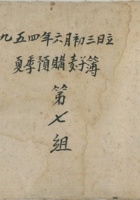 九五四年六月初三日立
夏季預購麦子簿
第七组